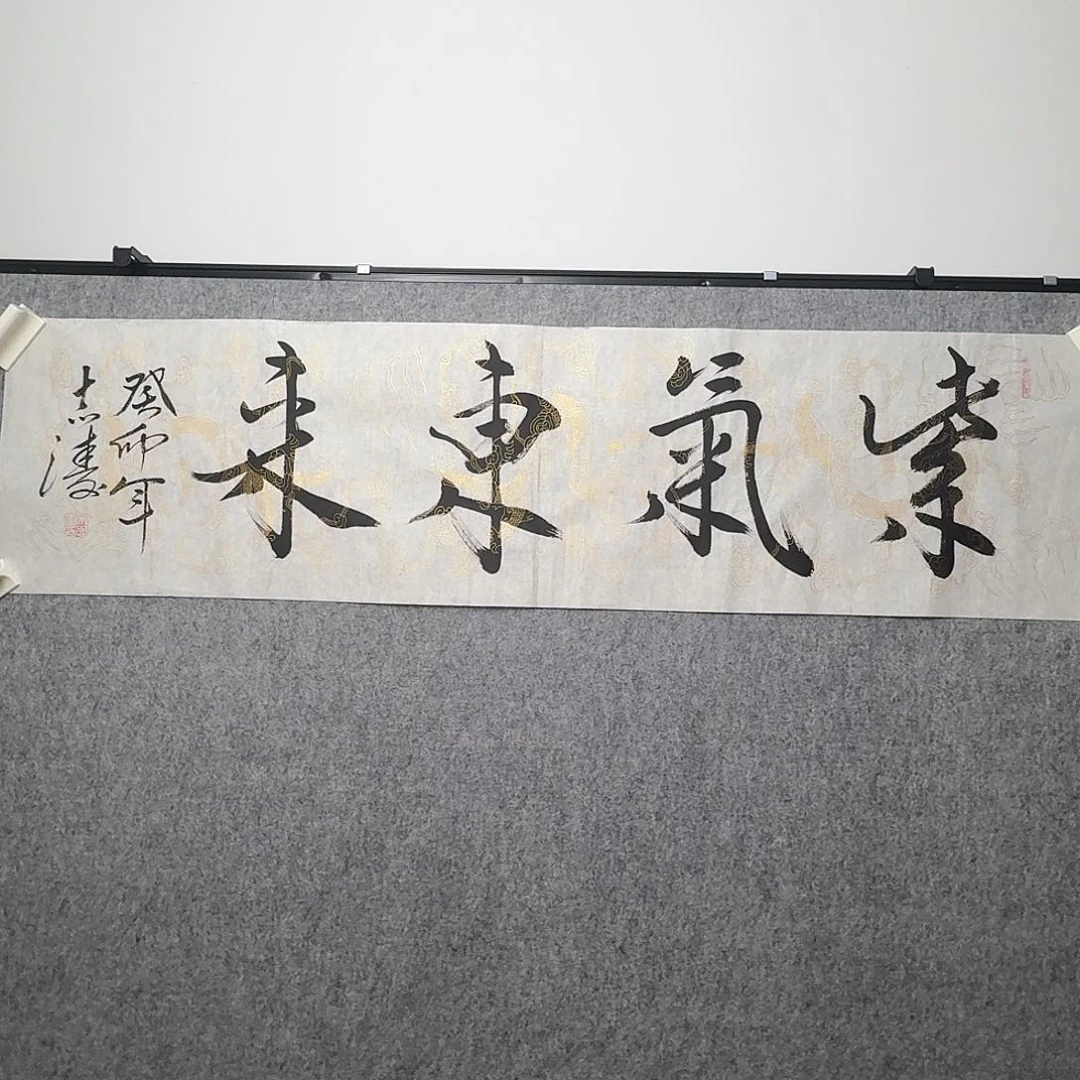 紫氣東来
癸卯年
志濤